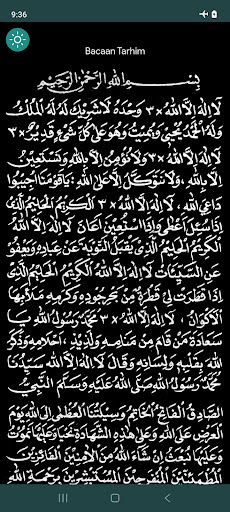 9:36
Bacaan Tarhim
بِسْــمِ اللهِ الرَّحْمٰنِ الرَّحِيْمِ
لَا اِلٰهَ اِلَّا اللهُ ×٣ وَحْدَهُ لَا شَرِيْكَ لَهُ لَهُ الْمُلْكُ
وَلَهُ الْحَمْدُ يُحْيِيْ وَيُمِيْتُ وَهُوَ عَلَى كُلِّ شَيْءٍ قَدِيْرٌ ×٣
لَا اِلٰهَ اِلَّا اللهُ ×٣ وَلَا نُؤْمِنُ اِلَّا بِاللهِ وَلَا نَسْتَعِيْنُ
اِلَّا بِاللهِ، وَلَا نَتَوَكَّلُ اِلَّا عَلَى اللهِ. يَاقَوْمَنَا اَجِيْبُوْا
دَاعِيَ اللهِ، لَا اِلٰهَ اِلَّا اللهُ ×٣ اَلْكَرِيْمُ الْحَكِيْمُ الَّذِيْ
اِذَا سُئِلَ اَعْطٰى وَاِذَا اسْتُعِيْنَ اَعَانَ لَا اِلٰهَ اِلَّا اللهُ
الْكَرِيْمُ الْحَلِيْمُ الَّذِيْ يَقْبَلُ التَّوْبَةَ عَنْ عِبَادِهِ وَيَعْفُوْ
عَنِ السَّيِّئَاتِ لَا اِلٰهَ اِلَّا اللهُ الْكَرِيْمُ الْحَلِيْمُ الَّذِيْ
اِذَا قَطَرَتْ لِيْ قَطْرَةٌ مِنْ بَحْرِ جُوْدِهِ وَكَرَمِهِ مَلَأَ بِهَا
الْاَكْوَانَ، لَا اِلٰهَ اِلَّا اللهُ ×٣ مُحَمَّدٌ رَسُوْلُ اللهِ يَا
سَعَادَةَ مَنْ قَامَ مِنْ مَنَامِهِ وَلَذِيْذِ اَحْلَامِهِ وَذَكَرَ
اللهَ بِقَلْبِهِ وَلِسَانِهِ وَقَالَ لَا اِلٰهَ اِلَّا اللهُ سَيِّدُنَا
مُحَمَّدٌ رَسُوْلُ اللهِ صَلَّى اللهُ عَلَيْهِ وَسَلَّمَ النَّبِيُّ
الصَّادِقُ الْفَاتِحُ الْخَاتِمُ وَسِيْلَتُنَا الْعُظْمٰى اِلَى اللهِ يَوْمَ
الْعَرْضِ عَلَى اللهِ وَعَلٰى هٰذِهِ الشَّهَادَةِ نَحْيَا وَعَلَيْهَا نَمُوْتُ
وَعَلَيْهَا نُبْعَثُ اِنْ شَاءَ اللهُ مِنَ الْاٰمِنِيْنَ الْفَائِزِيْنَ
الْمُطْمَئِنِّيْنَ الْفَرِحِيْنَ الْمُسْتَبْشِرِيْنَ بِرَحْمَةِ اللهِ